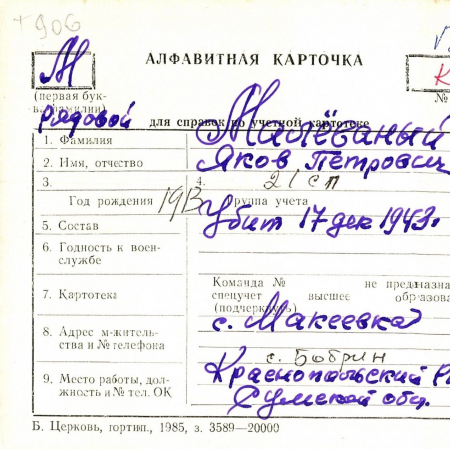 +906
АЛФАВИТНАЯ КАРТОЧКА
М
К
(первая бук-
ва фамилии)
№
Рядовой
для справок по учетной картотеке
1. Фамилия Малёваный
2. Имя, отчество Яков Петрович
3. Год рождения 1913
4. Группа учета 21 сп
5. Состав Убит 17 дек 1943г
6. Годность к воен-
службе
7. Картотека
Команда № не предназна
спецучет высшее образова
(подчеркнуть)
8. Адрес м-житель-
ства и № телефона
с. Макеевка
с. Бобрин
9. Место работы, дол-
жность и № тел. ОК
Краснопольский
Сумской обл.
Б. Церковь, гортип., 1985, з. 3589—20000